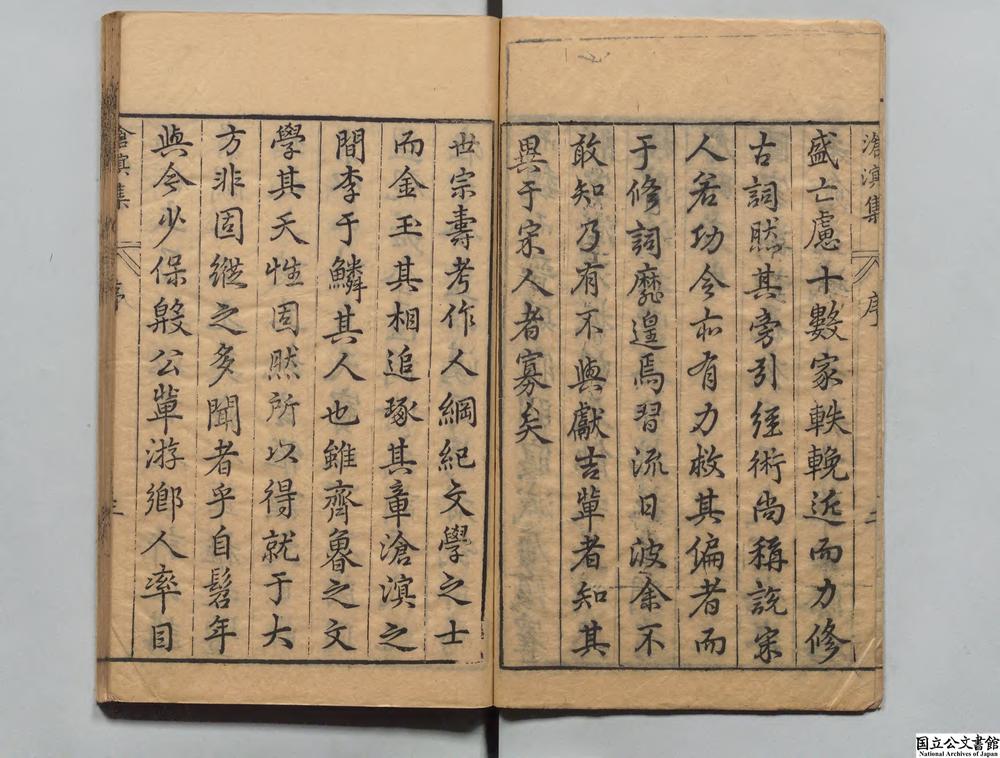 滄溟集 序 二
盛亡慮十數家軼輓近而力修
古詞眹其旁引經術尚稱說宋
人若功令亦有力救其偏者而
于修詞靡遑焉習流日波余不
敢知乃有不與獻吉輩者知其
異于宋人者寡矣
世宗壽考作人綱紀文學之士
而金玉其相追琢其章滄溟之
間李于鱗其人也雖齊魯之文
學其天性固然所以得就于大
方非固縱之多聞者乎自髫年
與今少保殷公輩游鄉人率目
滄溟集 序 三
国立公文書館
National Archives of Japan